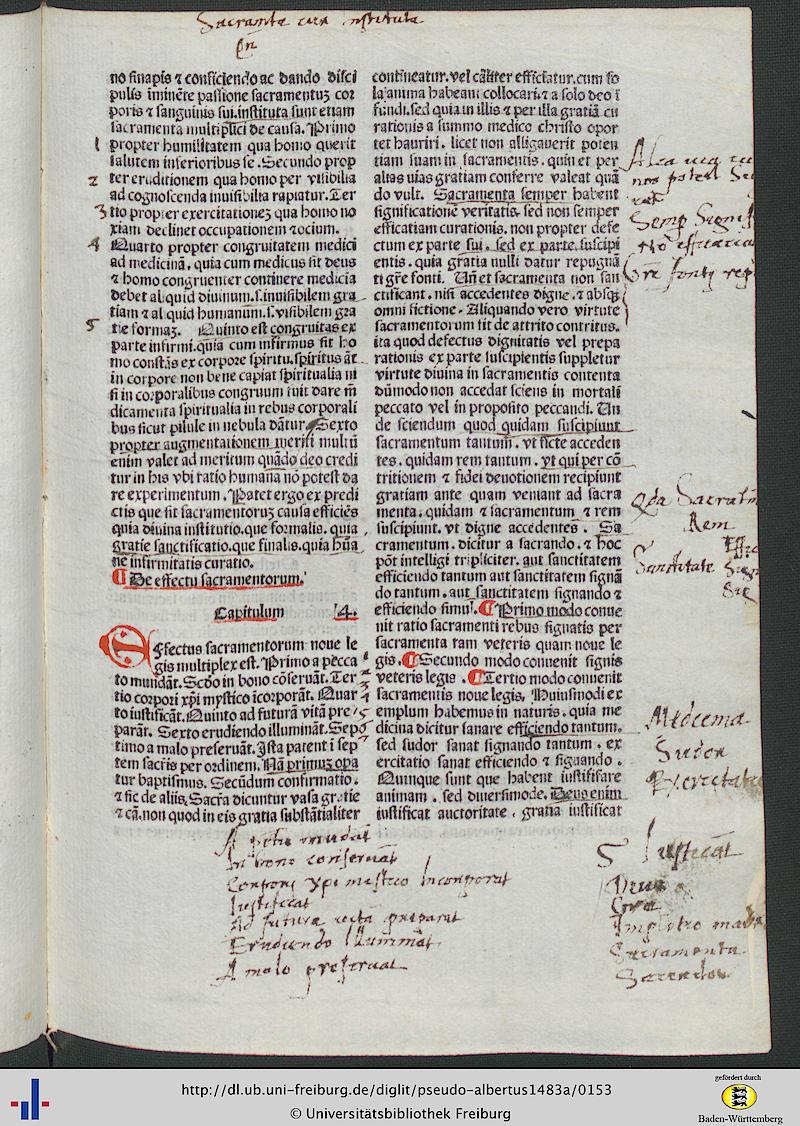 Sacramēta cur instituta
no sinapis ⁊ conficiendo ac dando disci
pulis īminēte passione sacramentuꝫ cor
poris ⁊ sanguinis sui.instituta sunt etiam
sacramenta multiplici de causa. Primo
1 propter humilitatem qua homo querit
salutem inferioribus se. Secundo prop
2 ter eruditionem qua homo per visibilia
ad cognoscenda inuisibilia rapiatur. Ter
3 tio propter exercitationeꝫ qua homo no
xiam declinet occupationem ⁊ocium.
4 Quarto propter congruitatem medici
ad medicinā. quia cum medicus sit deus
⁊ homo congruenter continere medicīa
debet aliquid diuinum.s.inuisibilem gra
tiam ⁊ aliquid humanum.s.visibilem gra
5 tie formaꝫ. Quinto est congruitas ex
parte infirmi.quia cum infirmus sit ho
mo constās ex corpore spiritu.spiritus āt
in corpore non bene capiat spiritualia ni
si in corporalibus congruum fuit dare m̄
dicamenta spiritualia in rebus corporali
bus sicut pilule in nebula dātur. Sexto
propter augmentationem meriti multū
enim valet ad meritum quādo deo credi
tur in his vbi ratio humana nō potest da
re experimentum. Patet ergo ex predi
ctis que sit sacramentoruꝫ causa efficiēs
quia diuina institutio.que formalis. quia
gratie sanctificatio.que finalis.quia hūa
ne infirmitatis curatio.
¶ De effectu sacramentorum.
Capitulum 4.
Effectus sacramentorum noue le
gis multiplex est. Primo a pecca
to mundāt. Scd̄o in bono cōseruāt. Ter
tio corpori xp̄i mystico īcorporāt. Quar
to iustificāt. Quinto ad futurā vitā pre
parāt. Sexto erudiendo illumināt. Sep
timo a malo preseruāt. Ista patent ī sep
tem sacris per ordinem. Nā primuꝫ opa
tur baptismus. Secūdum confirmatio.
⁊ sic de aliis. Sacra dicuntur vasa gratie
⁊ cā.non quod in eis gratia substātialiter
contineatur.vel cāliter efficiatur.cum so
la anima habeant collocari.⁊ a solo deo ī
fundi.sed quia in illis ⁊ per illa gratiā cu
rationis a summo medico christo opor
tet hauriri. licet non alligauerit poten
tiam suam in sacramentis. quin et per
alias uias gratiam conferre valeat quā
do vult. Sacramenta semper habent
significationē veritatis. sed non semper
efficatiam curationis. non propter defe
ctum ex parte sui. sed ex parte. suscipi
entis. quia gratia nulli datur repugnā
ti gr̄e fonti. Un̄ et sacramenta non san
ctificant. nisi accedentes digne. ⁊ absqꝫ
omni fictione. Aliquando vero virtute
sacramentorum fit de attrito contritus.
ita quod defectus dignitatis vel prepa
rationis ex parte suscipientis suppletur
virtute diuina in sacramentis contenta
dūmodo non accedat sciens in mortali
peccato vel in proposito peccandi. Un
de sciendum quod quidam suscipiunt
sacramentum tantum. vt ficte acceden
tes. quidam rem tantum. vt qui per cō
tritionem ⁊ fidei deuotionem recipiunt
gratiam ante quam veniant ad sacra
menta. quidam ⁊ sacramentum ⁊ rem
suscipiunt. vt digne accedentes. Sa
cramentum. dicitur a sacrando. ⁊ hoc
pōt intelligi tripliciter. aut sanctitatem
efficiendo tantum aut sanctitatem signā
do tantum. aut sanctitatem signando ⁊
efficiendo simul. ¶ Primo modo conue
nit ratio sacramenti rebus signatis per
sacramenta tam veteris quam noue le
gis. ¶ Secundo modo conuenit signis
veteris legis. ¶ Tertio modo conuenit
sacramentis noue legis. Huiusmodi ex
emplum habemus in naturis. quia me
dicina dicitur sanare efficiendo tantum.
sed sudor sanat signando tantum. ex
ercitatio sanat efficiendo ⁊ signando.
Quinque sunt que habent iustifiare
animam. sed diuersimode. Deus enim
iustificat auctoritate. gratia iustificat
Rem
Medicina
Sudor
Exercitatio
In bono conseruāt
Corpori xpi mistico Incorporat
Iustificat
Ad futurā vitā preparat
Erudiendo Illuminat
A malo preseruat
5 Iustificāt
Sacramenta
Sacerdos
http://dl.ub.uni-freiburg.de/diglit/pseudo-albertus1483a/0153
© Universitätsbibliothek Freiburg
gefördert durch
Baden-Württemberg